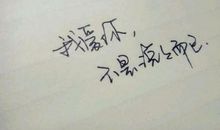 我爱你,
不是说说而已.